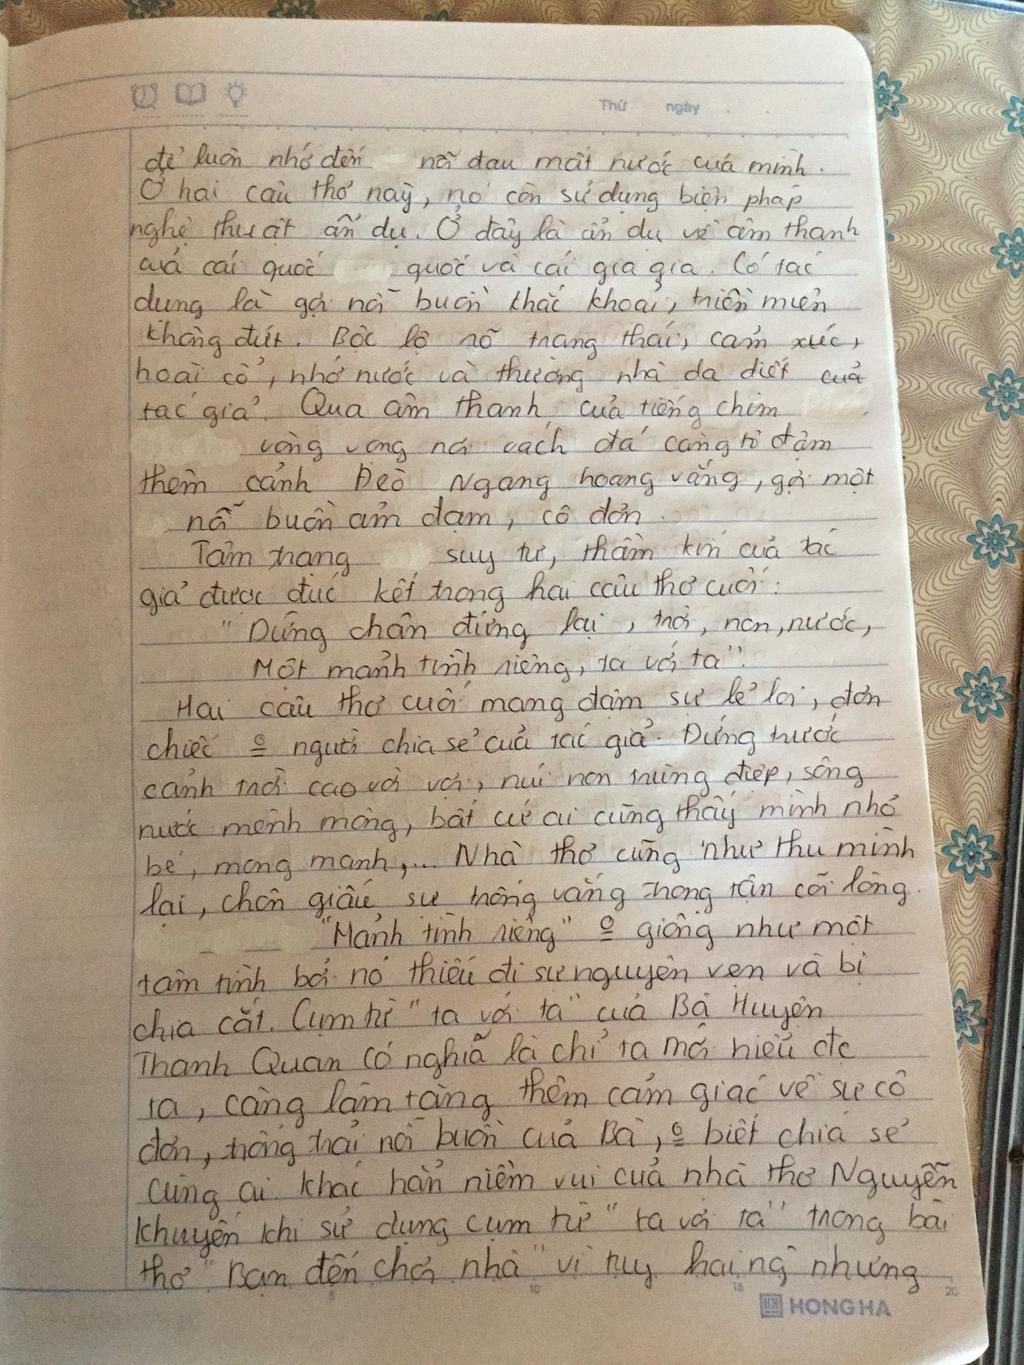 Thứ ngày
để luôn nhớ đến nỗi đau mất nước của mình.
Ở hai câu thơ này, nó còn sử dụng biện pháp
nghệ thuật ẩn dụ. Ở đây là ẩn dụ về âm thanh
của cái quốc quốc và cái gia gia. Có tác
dụng là gợi nỗi buồn khắc khoải, triền miên
không dứt. Bộc lộ rõ trạng thái, cảm xúc,
hoài cổ, nhớ nước và thương nhà da diết của
tác giả. Qua âm thanh của tiếng chim
vang vọng nơi vách đá càng tô đậm
thêm cảnh Đèo Ngang hoang vắng, gợi một
nỗi buồn ảm đạm, cô đơn.
Tâm trạng suy tư, thầm kín của tác
giả được đúc kết trong hai câu thơ cuối:
"Dừng chân đứng lại, trời, non, nước,
Một mảnh tình riêng, ta với ta".
Hai câu thơ cuối mang đậm sự lẻ loi, đơn
chiếc o người chia sẻ của tác giả. Đứng trước
cảnh trời cao vời vợi, núi non trùng điệp, sông
nước mênh mông, bất cứ ai cũng thấy mình nhỏ
bé, mong manh,... Nhà thơ cũng như thu mình
lại, chôn giấu sự trống vắng trong tận cõi lòng.
"Mảnh tình riêng" o giống như một
tâm tình bởi nó thiếu đi sự nguyên vẹn và bị
chia cắt. Cụm từ "ta với ta" của Bà Huyện
Thanh Quan có nghĩa là chỉ ta mới hiểu đc
ta, càng làm tăng thêm cảm giác về sự cô
đơn, trống trải nỗi buồn của Bà, o biết chia sẻ
cùng ai. Khác hẳn niềm vui của nhà thơ Nguyễn
Khuyến khi sử dụng cụm từ "ta với ta" trong bài
thơ "Bạn đến chơi nhà" vì tuy hai ng nhưng
5 10 15 20
HONG HA